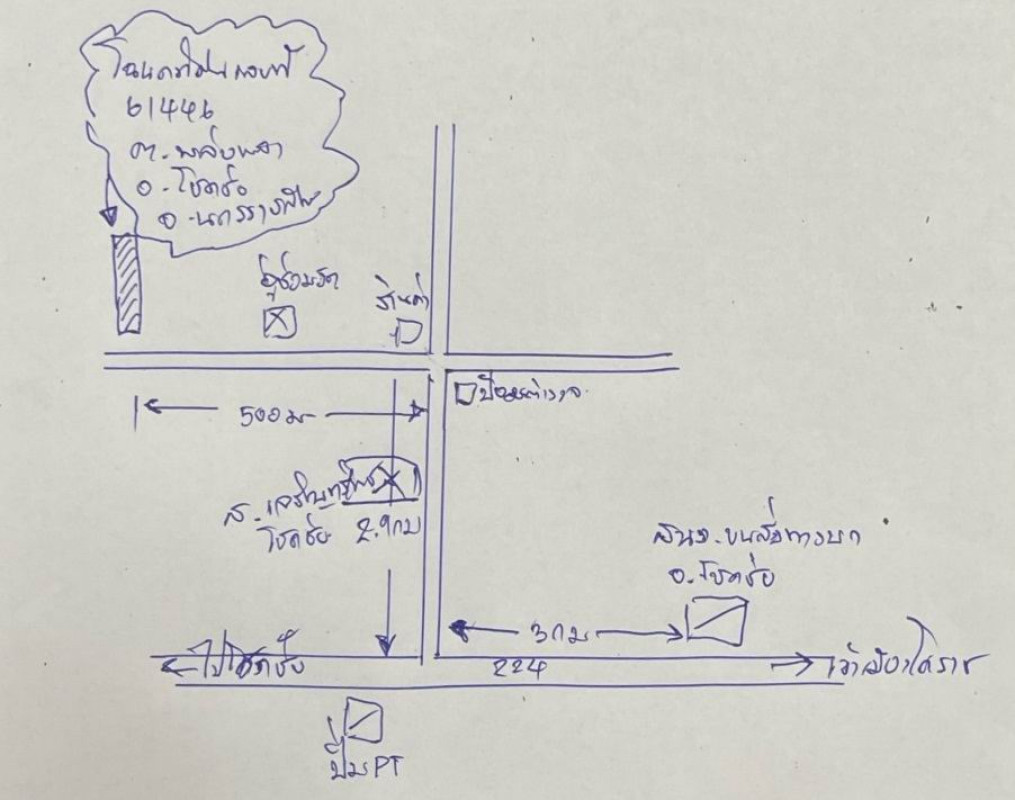 โฉนดที่ดินเลขที่
61446
ต.พลับพลา
อ.โชคชัย
จ.นครราชสีมา
อู่ซ่อมรถ
ร้านค้า
ป้อมตำรวจ
500 ม
ส.เจริญทรัพย์
โชคชัย 2.9 กม
สนง.ขนส่งทางบก
อ.โชคชัย
3 กม
ไปโชคชัย
224
เข้าเมืองโคราช
ปั๊ม PT